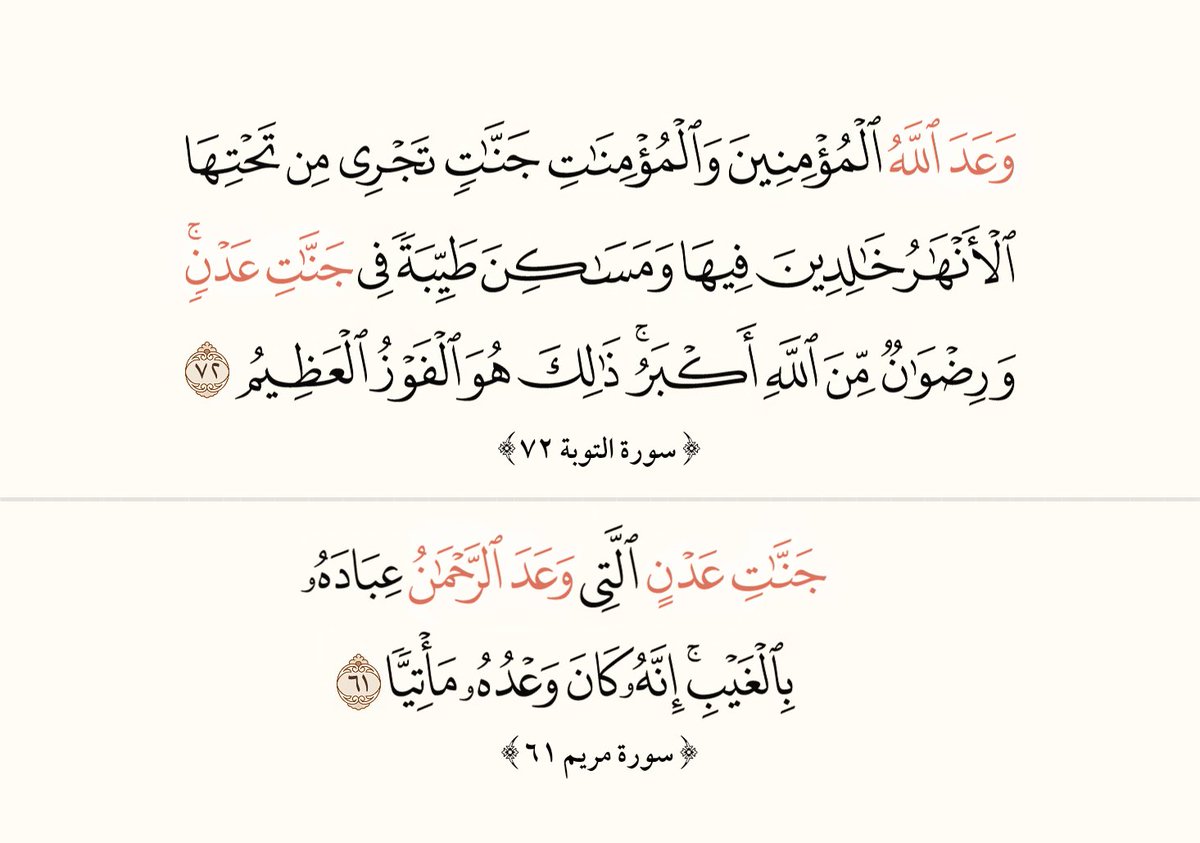 وَعَدَ ٱللَّهُ ٱلْمُؤْمِنِينَ وَٱلْمُؤْمِنَٰتِ جَنَّٰتٍ تَجْرِى مِن تَحْتِهَا
ٱلْأَنْهَٰرُ خَٰلِدِينَ فِيهَا وَمَسَٰكِنَ طَيِّبَةً فِى جَنَّٰتِ عَدْنٍۚ
وَرِضْوَٰنٌ مِّنَ ٱللَّهِ أَكْبَرُۚ ذَٰلِكَ هُوَ ٱلْفَوْزُ ٱلْعَظِيمُ ٧٢
﴿ سورة التوبة ٧٢ ﴾
جَنَّٰتِ عَدْنٍ ٱلَّتِى وَعَدَ ٱلرَّحْمَٰنُ عِبَادَهُۥ
بِٱلْغَيْبِۚ إِنَّهُۥ كَانَ وَعْدُهُۥ مَأْتِيًّا ٦١
﴿ سورة مريم ٦١ ﴾